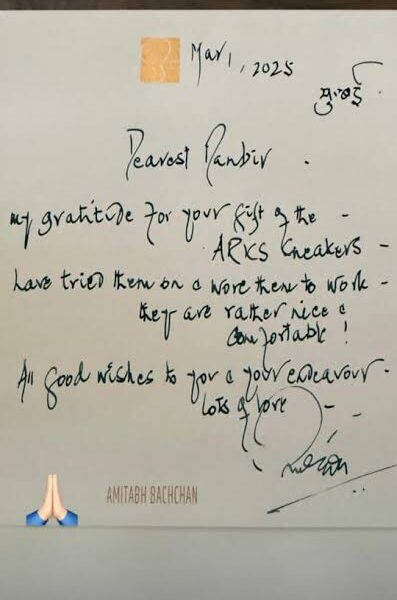 Mar 1, 2025
मुंबई
Dearest Ranbir -
my gratitude for your gift of the -
ARKS sneakers -
have tried them on & wore them to work -
they are rather nice &
comfortable !
All good wishes to you & your endeavour -
lots of love -
AMITABH BACHCHAN